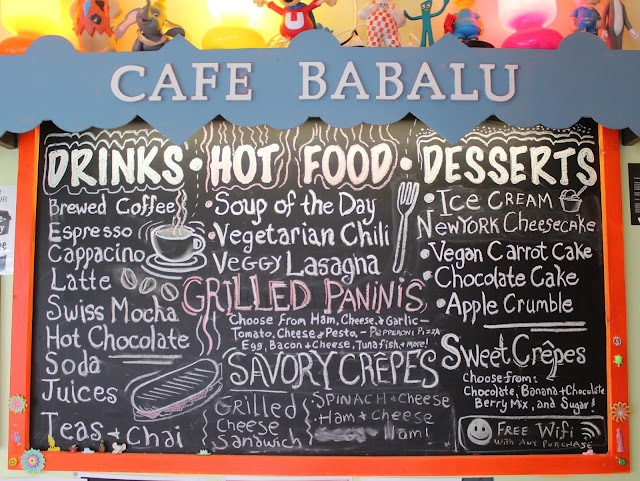 CAFE BABALU
DRINKS • HOT FOOD • DESSERTS
Brewed Coffee
Espresso
Cappacino
Latte
Swiss Mocha
Hot Chocolate
Soda
Juices
Teas + Chai
• Soup of the Day
• Vegetarian Chili
Veggy Lasagna
GRILLED PANINIS
Choose From Ham, Cheese, + Garlic -
Tomato, Cheese, + Pesta - Pepperoni Pizza
Egg, Bacon + Cheese, Tunafish, + more!
SAVORY CRÊPES
Grilled
Cheese
Sandwich
Spinach + Cheese
Ham + Cheese
Ham!
• Ice Cream
New York Cheesecake
• Vegan Carrot Cake
• Chocolate Cake
• Apple Crumble
Sweet Crêpes
Choose from:
Chocolate, Banana + Chocolate
Berry Mix, and Sugar!
FREE WiFi
With any Purchase